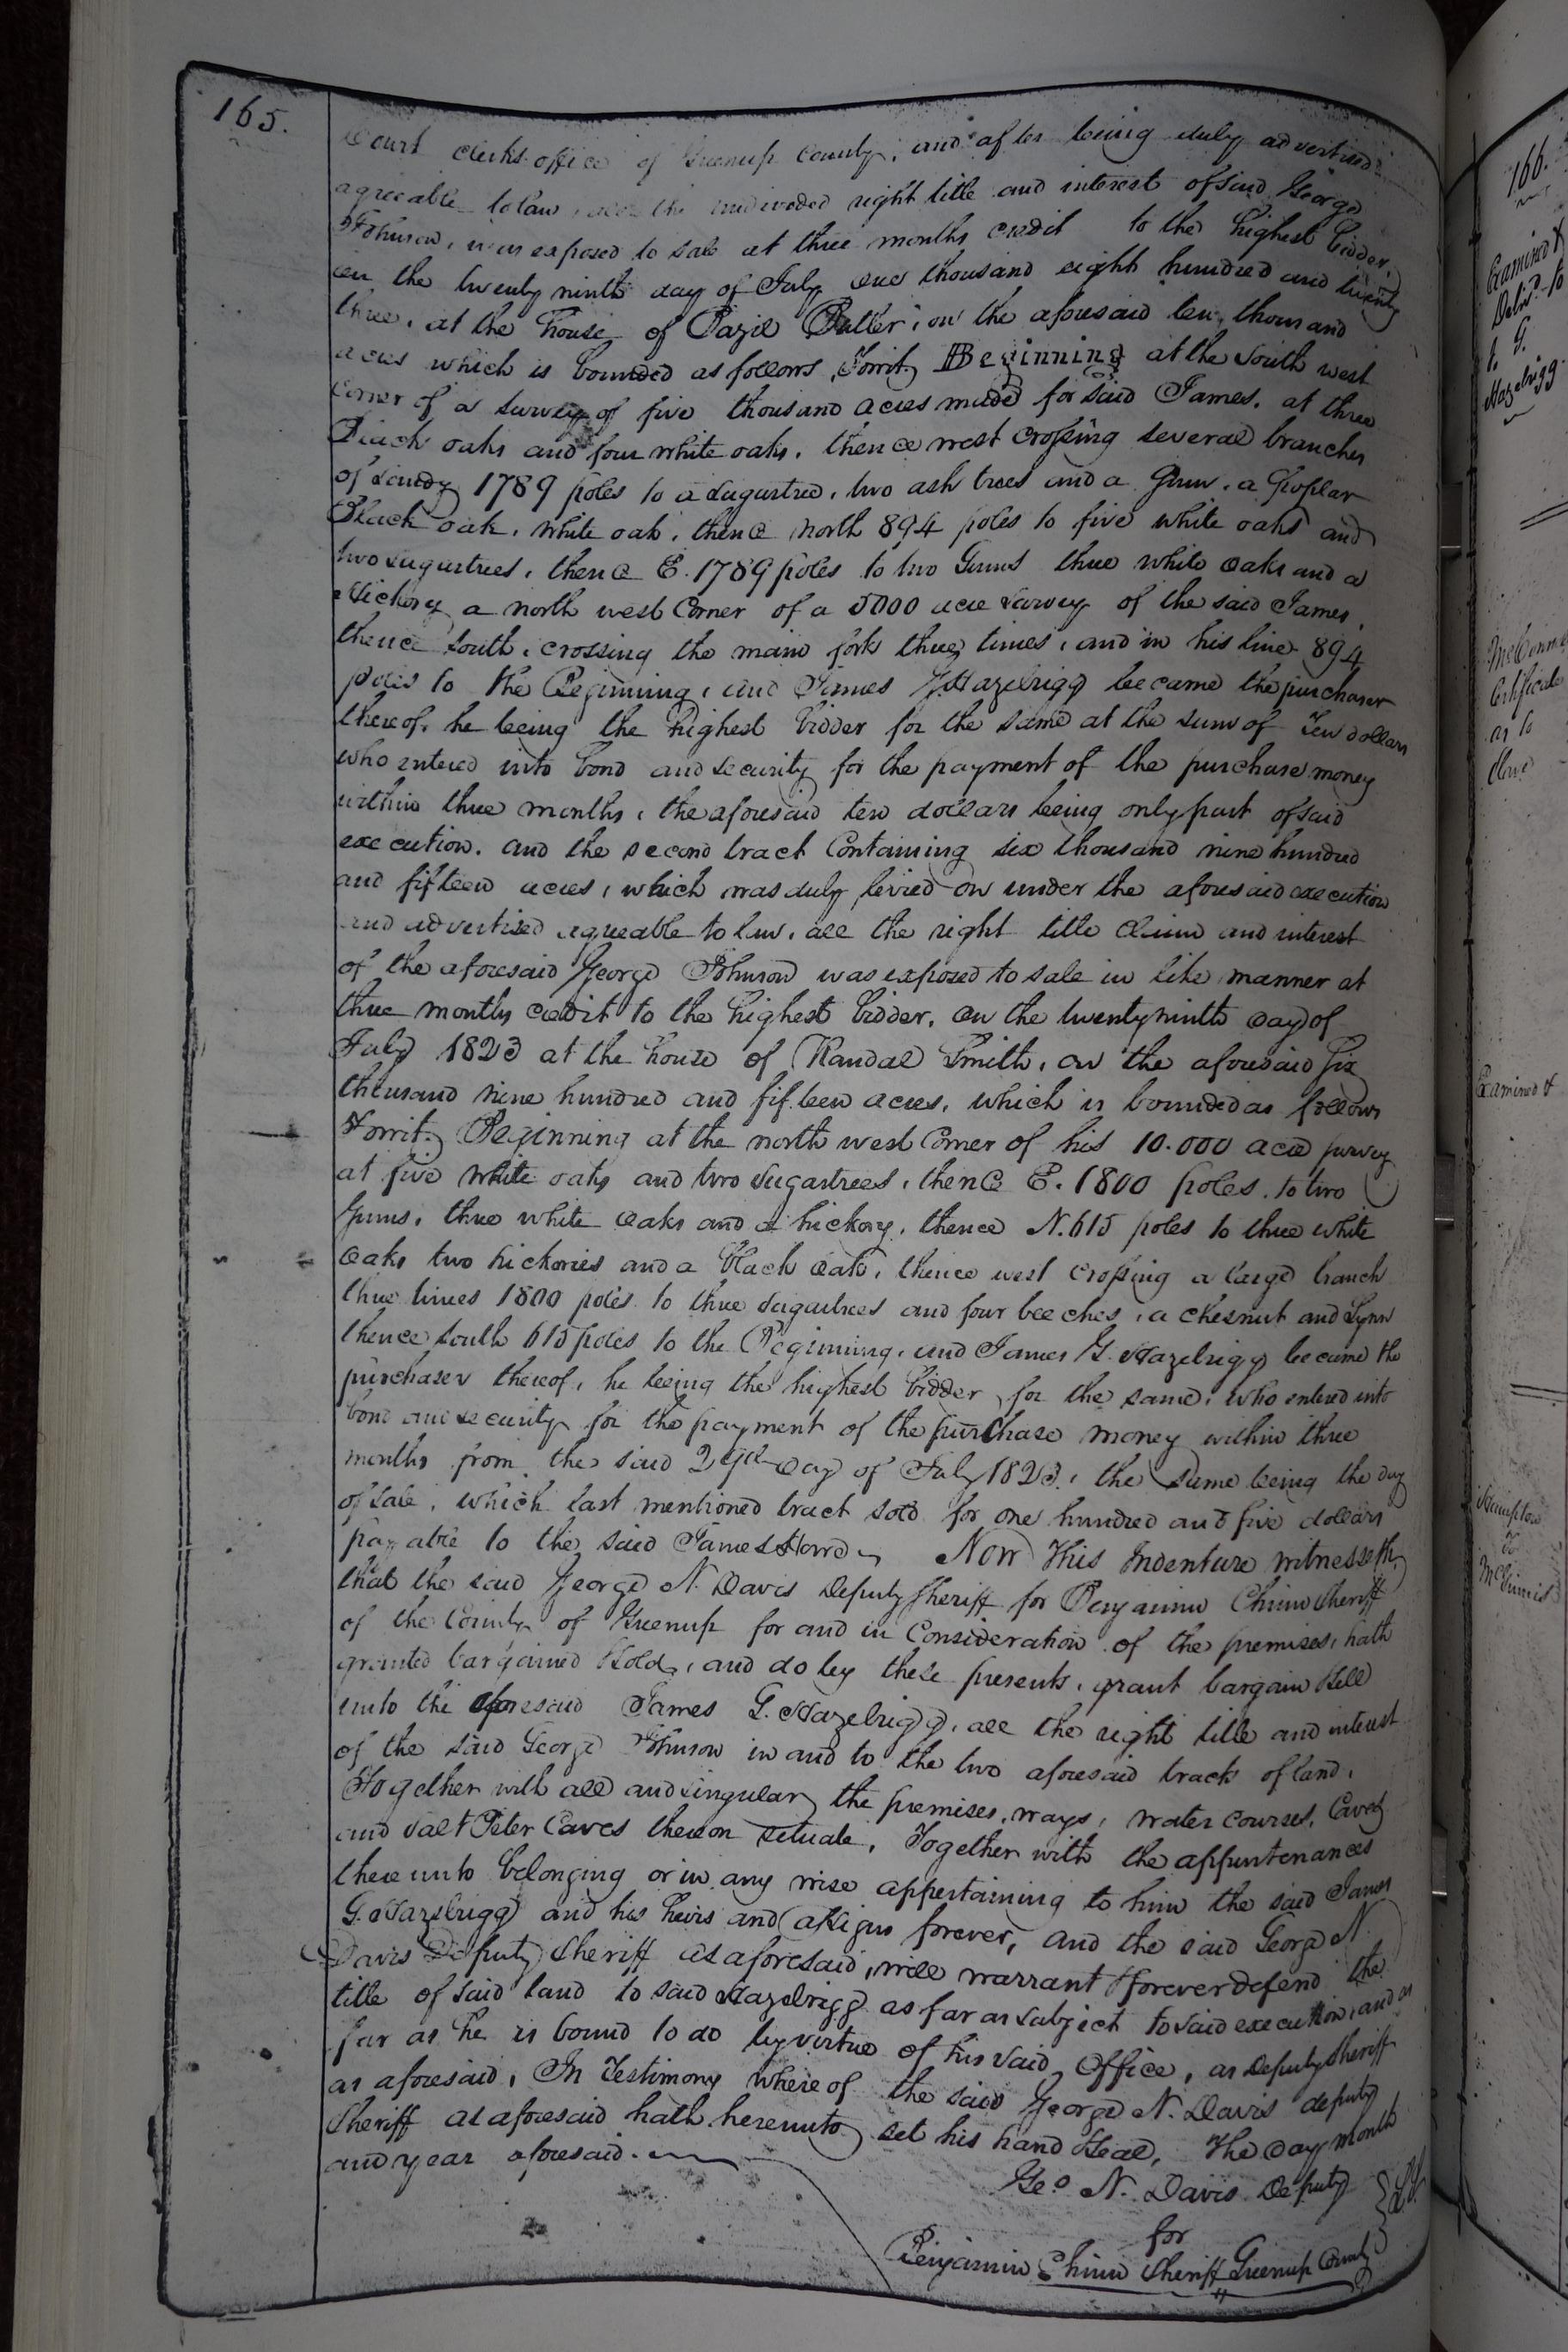 165.
Court clerks office of Greenup County, and after being duly advertised
agreeable to law, all the undivided right title and interest of said George
Johnson, was exposed to sale at three months credit to the highest bidder,
on the twenty ninth day of July one thousand eight hundred and twenty
three, at the house of Bazil Butler, on the aforesaid ten thousand
acres which is bounded as follows, Towit, Beginning at the South west
Corner of a survey of five thousand acres made for said James, at three
Black oaks and four white oaks, thence west crossing several branches
of Sandy 1789 poles to a sugartree, two ash trees and a Gum, a Poplar
Black oak, white oak, thence North 894 poles to five white oaks and
two sugartrees, thence E. 1789 poles to two Gums three white oaks and a
Hickory a north west Corner of a 5000 acre survey of the said James,
thence South, crossing the main fork three times, and in his line 894
poles to the Beginning, and James G. Hazelrigg became the purchaser
thereof, he being the highest bidder for the same at the sum of Ten dollars
who entered into bond and security for the payment of the purchase money
within three months, the aforesaid ten dollars being only part of said
execution. and the second tract Containing six thousand nine hundred
and fifteen acres, which was duly levied on under the aforesaid execution
and advertised agreeable to law, all the right title claim and interest
of the aforesaid George Johnson was exposed to sale in like manner at
three months credit to the highest bidder, on the twenty ninth day of
July 1823 at the house of Randal Smith, on the aforesaid six
thousand nine hundred and fifteen acres, which is bounded as follows
Towit, Beginning at the north west Corner of his 10.000 acre survey
at five white oaks and two sugartrees, thence E. 1800 poles, to two
Gums, three white oaks and a hickory, thence N. 615 poles to three white
oaks two hickories and a black oak, thence west crossing a large branch
three times 1800 poles to three sugartrees and four beeches, a chesnut and Lynn
thence South 615 poles to the Beginning, and James G. Hazelrigg became the
purchaser thereof, he being the highest bidder for the same, who entered into
bond and security for the payment of the purchase money within three
months from the said 29th day of July 1823, the same being the day
of sale, which last mentioned tract sold for one hundred and five dollars
payable to the said James Howe. Now This Indenture witnesseth,
that the said George N. Davis Deputy Sheriff for Benjamin Chinn Sheriff
of the County of Greenup for and in Consideration of the premises, hath
granted bargained & sold, and do by these presents, grant bargain & sell
unto the aforesaid James G. Hazelrigg, all the right title and interest
of the said George Johnson in and to the two aforesaid tracts of land,
Together with all and singular, the premises, ways, water courses, Caves
and Salt Peter Caves thereon situate, Together with the appurtenances
there unto belonging or in any wise appertaining to him the said James
G. Hazelrigg and his heirs and assigns forever, and the said George N.
Davis Deputy Sheriff as aforesaid, will warrant & forever defend the
title of said land to said Hazelrigg as far as subject to said execution, and as
far as he is bound to do by virtue of his said Office, as Deputy Sheriff
as aforesaid, In Testimony whereof the said George N. Davis deputy
Sheriff as aforesaid hath hereunto set his hand & seal, The day month
and year aforesaid.
Geo. N. Davis Deputy
for
Benjamin Chinn Sheriff Greenup County
166.
Examined &
Delivd to
J. G.
Hazelrigg
Certificate
as to
Examined &
Hampton
to
McGinnis